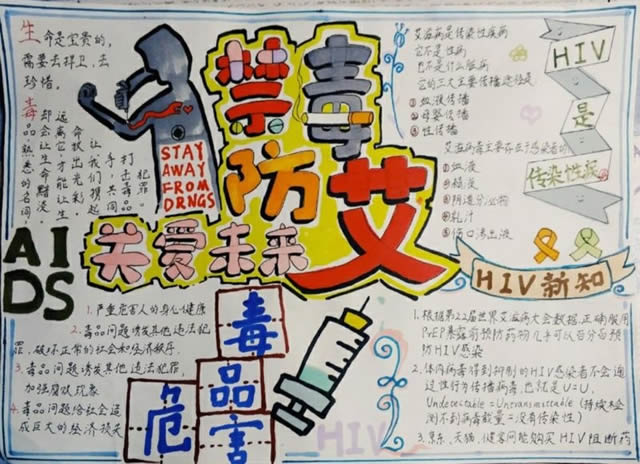 生命是宝贵的,
需要去捍卫,去
珍惜。
STAY
AWAY
FROM
DRNGS
禁毒
防艾
关爱未来
AIDS
艾滋病是传染性疾病
它不是性病
也不是什么脏病
它的三大主要传播途径是
①血液传播
②母婴传播
③性传播
艾滋病毒主要存在于感染者的
①血液
②精液
③阴道分泌物
④乳汁
⑤伤口渗出液
HIV
是
传染性疾
1.严重危害人的身心健康
2.毒品问题诱发其他违法犯
罪,破坏正常的社会和经济秩序.
3.毒品问题诱发其他违法犯罪,
加强腐败现象
4.毒品问题给社会造
成巨大的经济损失
毒
品
危害
HIV
HIV新知
1.根据第22届世界艾滋病大会数据,正确服用
PrEP暴露前预防药物几乎可以百分百预
防HIV感染
2.体内病毒得到抑制的HIV感染者不会通
过性行为传播病毒,也就是U=U,
Undetectable=Untransmittable(持续检
测不到病毒载量=没有传染性)
3.京东、天猫、健客网能购买HIV阻断药